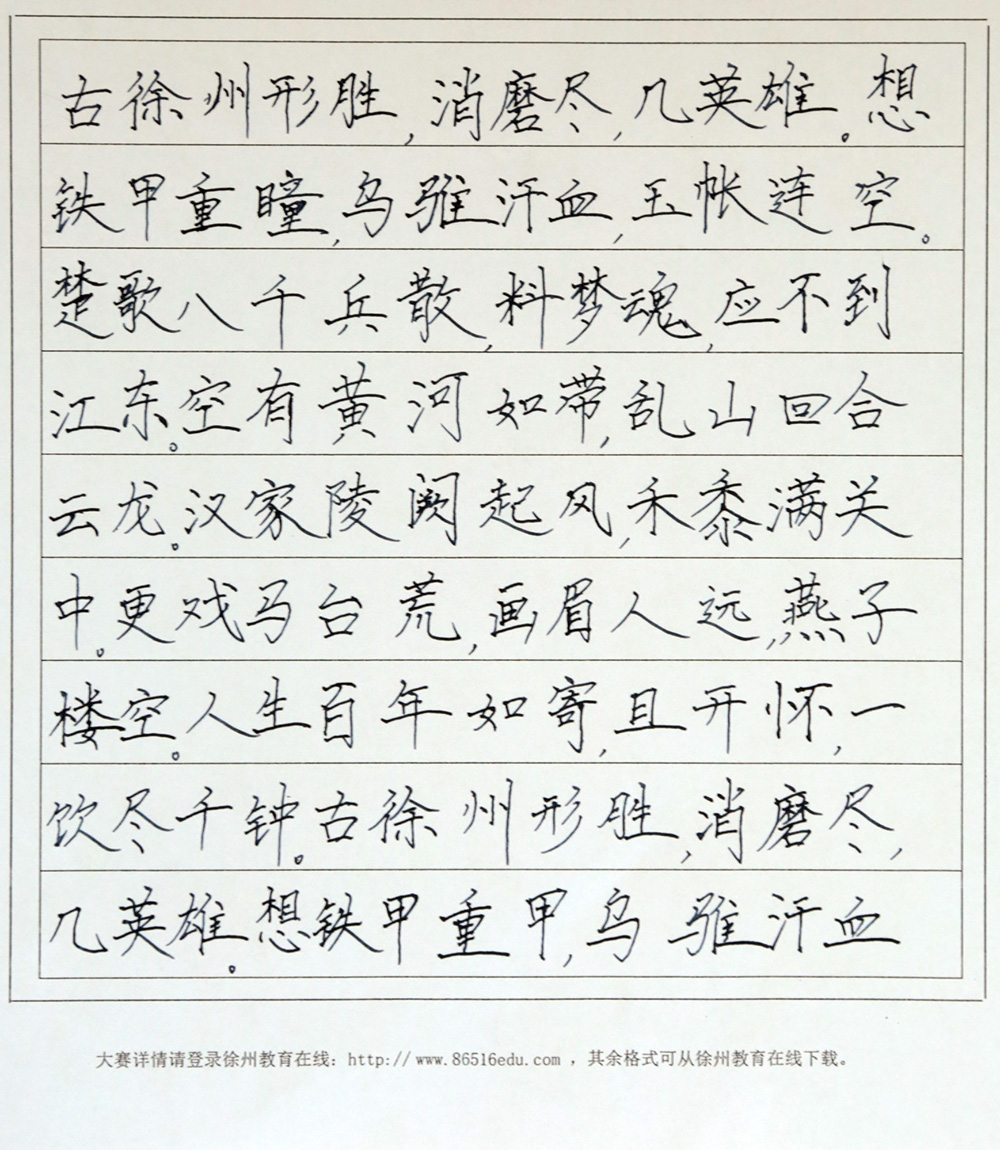 古徐州形胜,消磨尽,几英雄。想
铁甲重瞳,乌骓汗血,玉帐连空。
楚歌八千兵散,料梦魂,应不到
江东。空有黄河如带,乱山回合
云龙。汉家陵阙起风,禾黍满关
中。更戏马台荒,画眉人远,燕子
楼空。人生百年如寄,且开怀,一
饮尽千钟。古徐州形胜,消磨尽,
几英雄。想铁甲重甲,乌骓汗血
大赛详情请登录徐州教育在线：http://www.86516edu.com ，其余格式可从徐州教育在线下载。